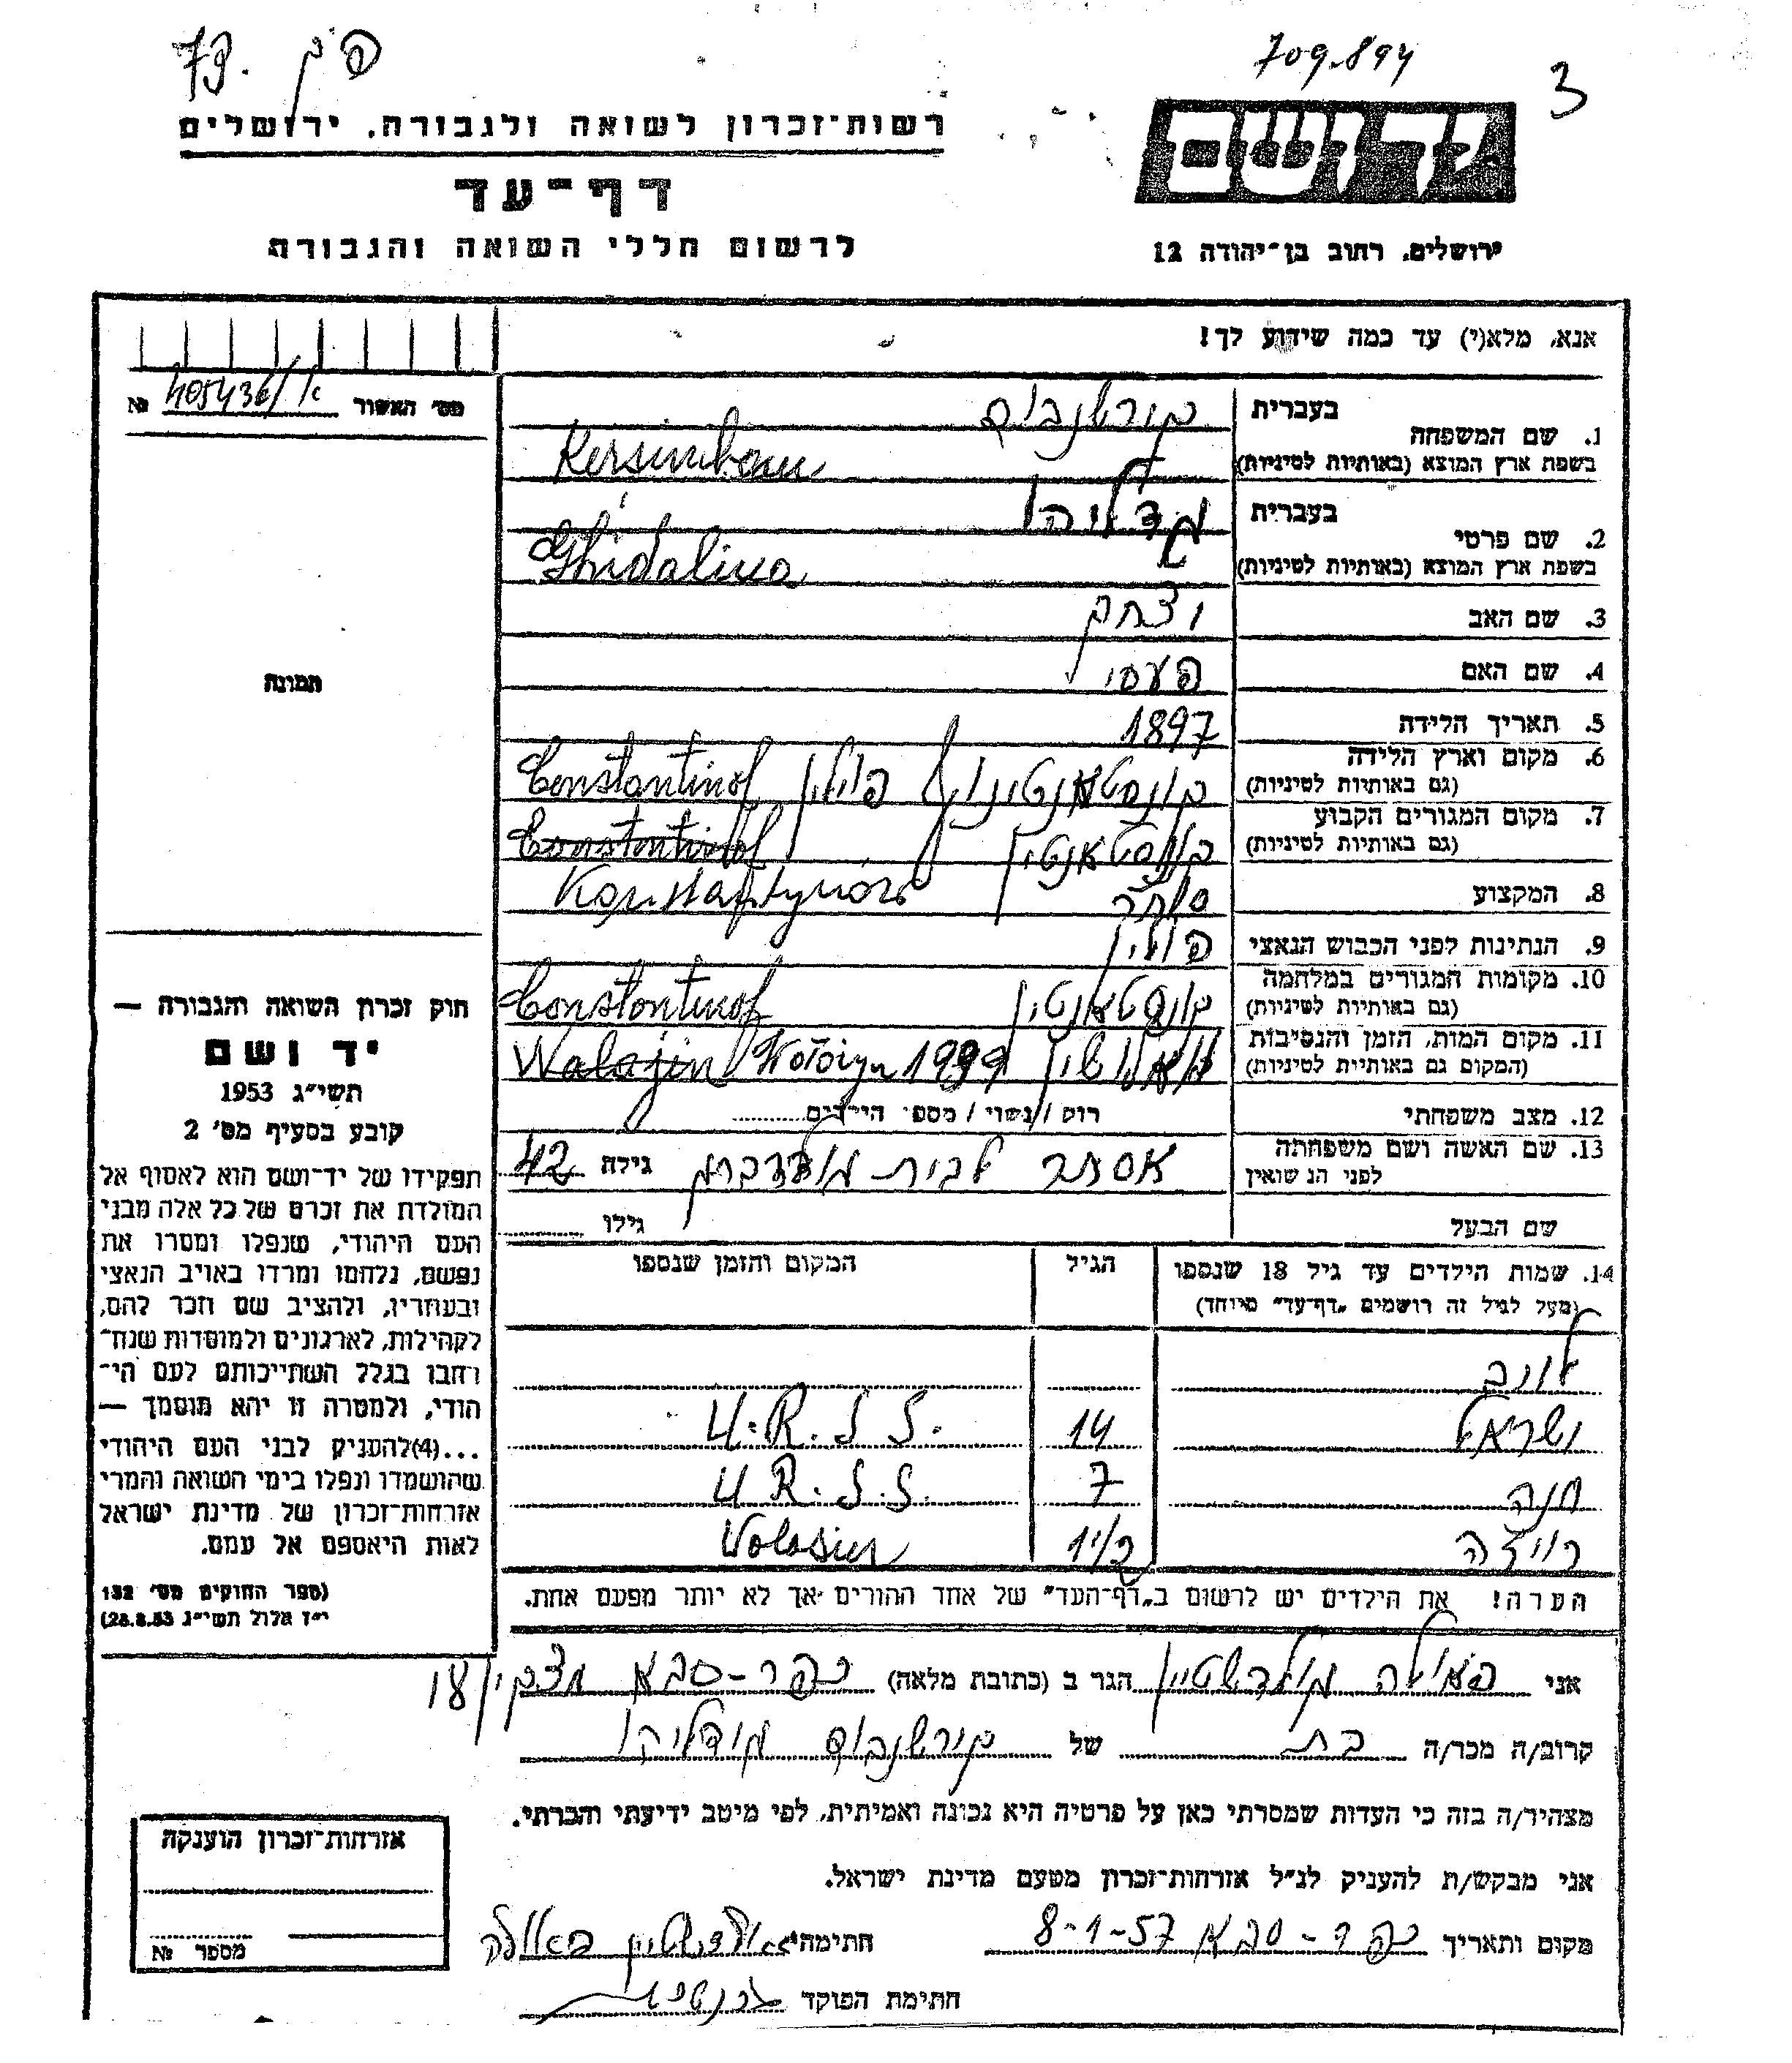 פ ק 79.
709.894
3
רשות־זכרון לשואה ולגבורה, ירושלים
דף־עד
לרשום חללי השואה והגבורה
יד ושם
ירושלים, רחוב בן־יהודה 12
אנא, מלא(י) עד כמה שידוע לך!
מס׳ האשור 405436/א №
1. שם המשפחה
בעברית קירשנבוים
בשפת ארץ המוצא (באותיות לטיניות) Kersinbaum
2. שם פרטי
בעברית גדליהו
בשפת ארץ המוצא (באותיות לטיניות) Ghidaliua
3. שם האב יצחק
4. שם האם
5. תאריך הלידה 1897
6. מקום וארץ הלידה
(גם באותיות לטיניות) קונסטאנטינוף פולין Constantinof
7. מקום המגורים הקבוע
(גם באותיות לטיניות) קונסטאנטין Constantinof
8. המקצוע סוחר Konstantynów
9. הנתינות לפני הכבוש הנאצי פולין
10. מקומות המגורים במלחמה
(גם באותיות לטיניות) קונסטאנטין Constantinof
11. מקום המות, הזמן והנסיבות
(המקום גם באותיות לטיניות) Walajin Wołożyn
12. מצב משפחתי רוק / נשוי / מספר הילדים
13. שם האשה ושם משפחתה
לפני הנשואין אסתר לבית גולדברג גילה 42
שם הבעל גילו
14. שמות הילדים עד גיל 18 שנספו
(מעל לגיל זה רושמים „דף־עד” מיוחד) הגיל המקום והזמן שנספו
ישראל 14 U.R.S.S.
חנה 7 U.R.S.S.
רויזה 1 1/2 Wolosin
הערה! את הילדים יש לרשום ב„דף־העד” של אחד ההורים אך לא יותר מפעם אחת.
תמונה
חוק זכרון השואה והגבורה —
יד ושם
תשי״ג 1953
קובע בסעיף מס׳ 2
תפקידו של יד־ושם הוא לאסוף אל
המולדת את זכרם של כל אלה מבני
העם היהודי, שנפלו ומסרו את
נפשם, נלחמו ומרדו באויב הנאצי
ובעוזריו, ולהציב שם וזכר להם,
לקהילות, לארגונים ולמוסדות שנח־
רבו בגלל השתייכותם לעם הי־
הודי, ולמטרה זו יהא מוסמך —
...(4) להעניק לבני העם היהודי
שהושמדו ונפלו בימי השואה והמרי
אזרחות־זכרון של מדינת ישראל
לאות היאספם אל עמם.
(ספר החוקים מס׳ 132
י״ז אלול תשי״ג 28.8.53)
אני פאולה גולדשטיין הגר ב (כתובת מלאה) כפר-סבא
קרוב/ה מכר/ה בת של קירשנבוים גדליהו
מצהיר/ה בזה כי העדות שמסרתי כאן על פרטיה היא נכונה ואמיתית, לפי מיטב ידיעתי והכרתי.
אני מבקש/ת להעניק לנ״ל אזרחות־זכרון מטעם מדינת ישראל.
מקום ותאריך כפר-סבא 8-1-57 חתימה גולדשטיין פאולה
חתימת הפוקד
אזרחות־זכרון הוענקה
מספר №